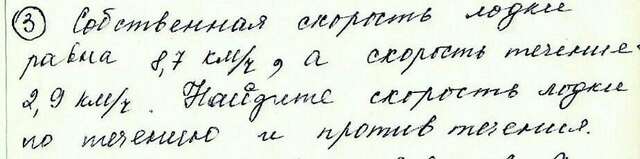 ③ Собственная скорость лодки
равна 8,7 км/ч, а скорость течение-
2,9 км/ч. Найдите скорость лодки
по течению и против течения.